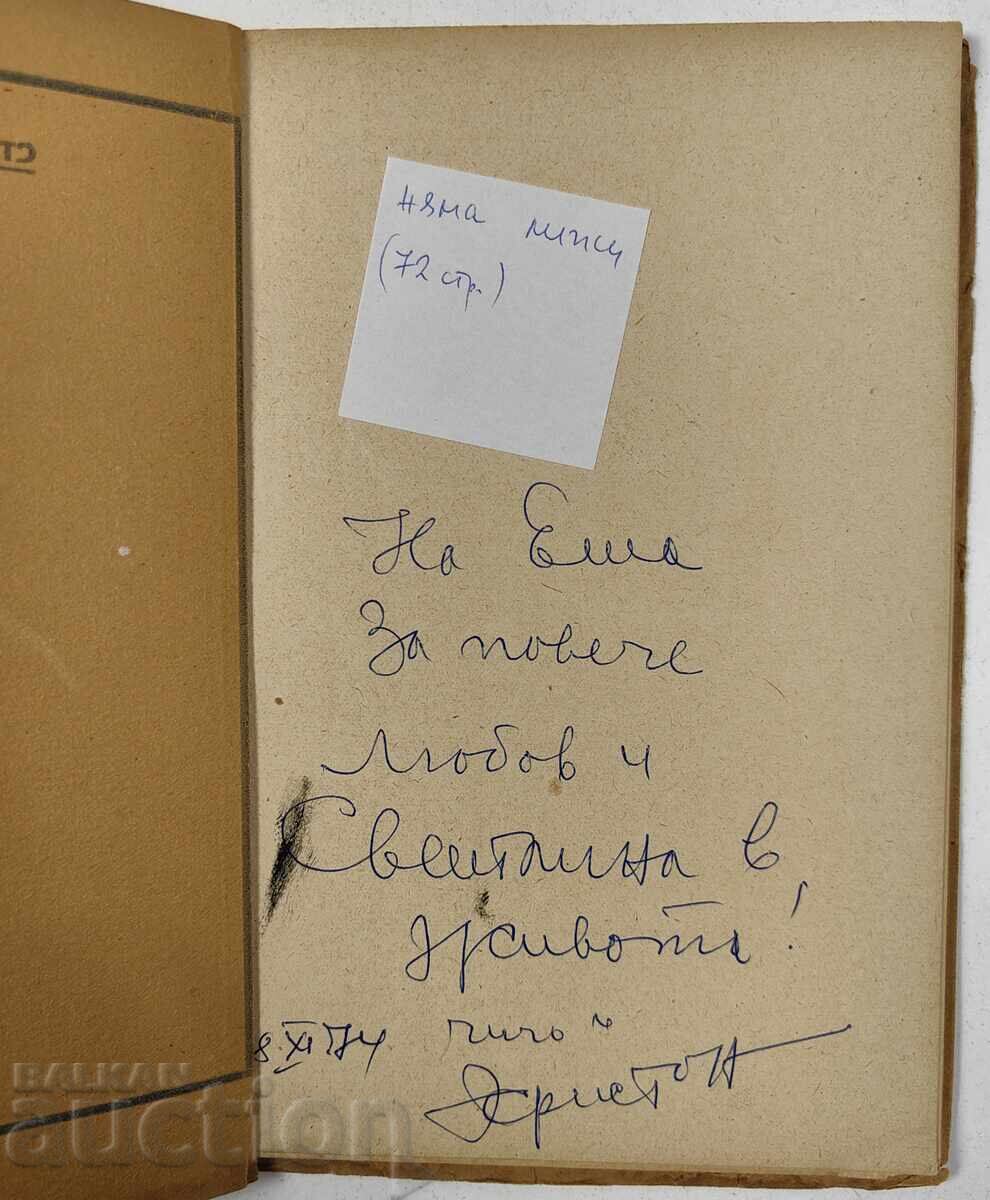 СТ
няма липси
(72 стр.)
На Ема
За повече
любов и
Светлина в
живота!
8.XI 74 чичо
Христо
BALKAN
auction